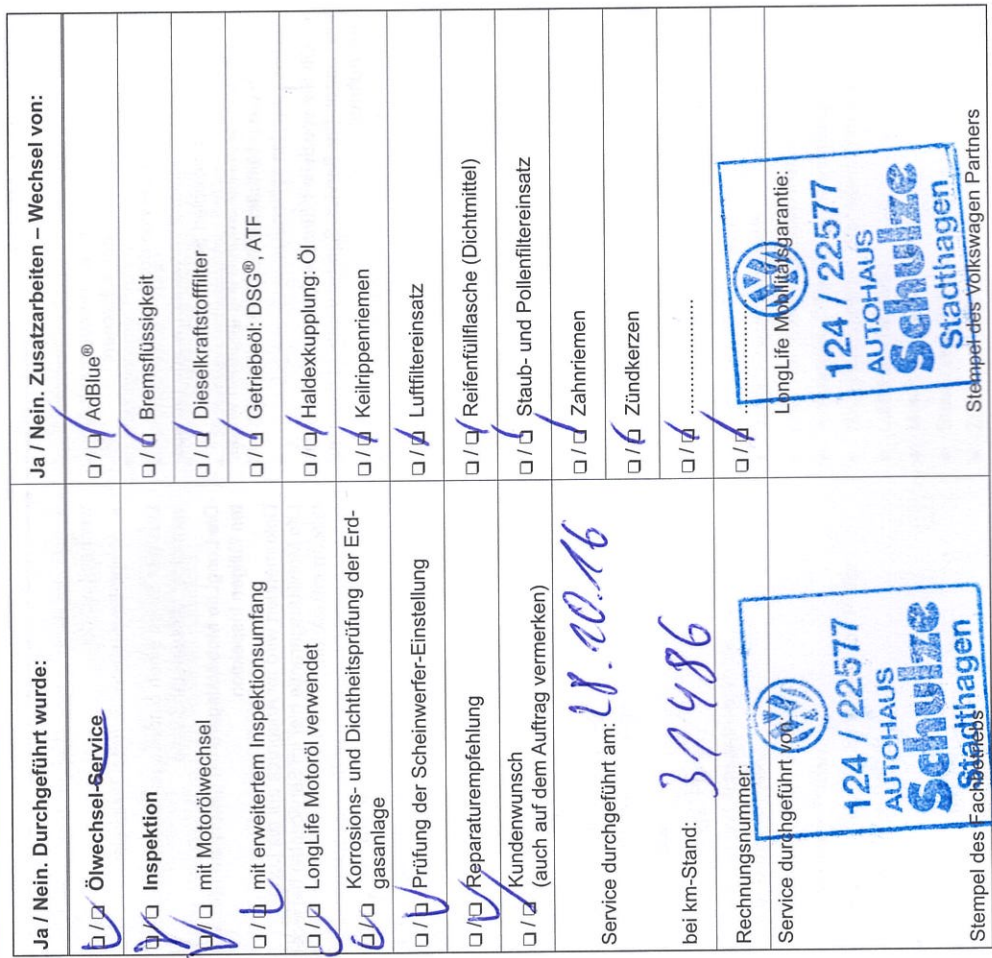 Ja / Nein. Durchgeführt wurde:
❏/❏ Ölwechsel-Service
❏/❏ Inspektion
❏/❏ mit Motorölwechsel
❏/❏ mit erweitertem Inspektionsumfang
❏/❏ LongLife Motoröl verwendet
❏/❏ Korrosions- und Dichtheitsprüfung der Erd-
gasanlage
❏/❏ Prüfung der Scheinwerfer-Einstellung
❏/❏ Reparaturempfehlung
❏/❏ Kundenwunsch
(auch auf dem Auftrag vermerken)
Service durchgeführt am: 28.10.16
bei km-Stand: 31486
Rechnungsnummer:
Service durchgeführt von:
124 / 22577
AUTOHAUS
Schulze
Stadthagen
Stempel des Fachbetriebs
Ja / Nein. Zusatzarbeiten – Wechsel von:
❏/❏ AdBlue®
❏/❏ Bremsflüssigkeit
❏/❏ Dieselkraftstofffilter
❏/❏ Getriebeöl: DSG®, ATF
❏/❏ Haldexkupplung: Öl
❏/❏ Keilrippenriemen
❏/❏ Luftfiltereinsatz
❏/❏ Reifenfüllflasche (Dichtmittel)
❏/❏ Staub- und Pollenfiltereinsatz
❏/❏ Zahnriemen
❏/❏ Zündkerzen
❏/❏ ........................
❏/❏ ........................
LongLife Mobilitätsgarantie:
124 / 22577
AUTOHAUS
Schulze
Stadthagen
Stempel des Volkswagen Partners